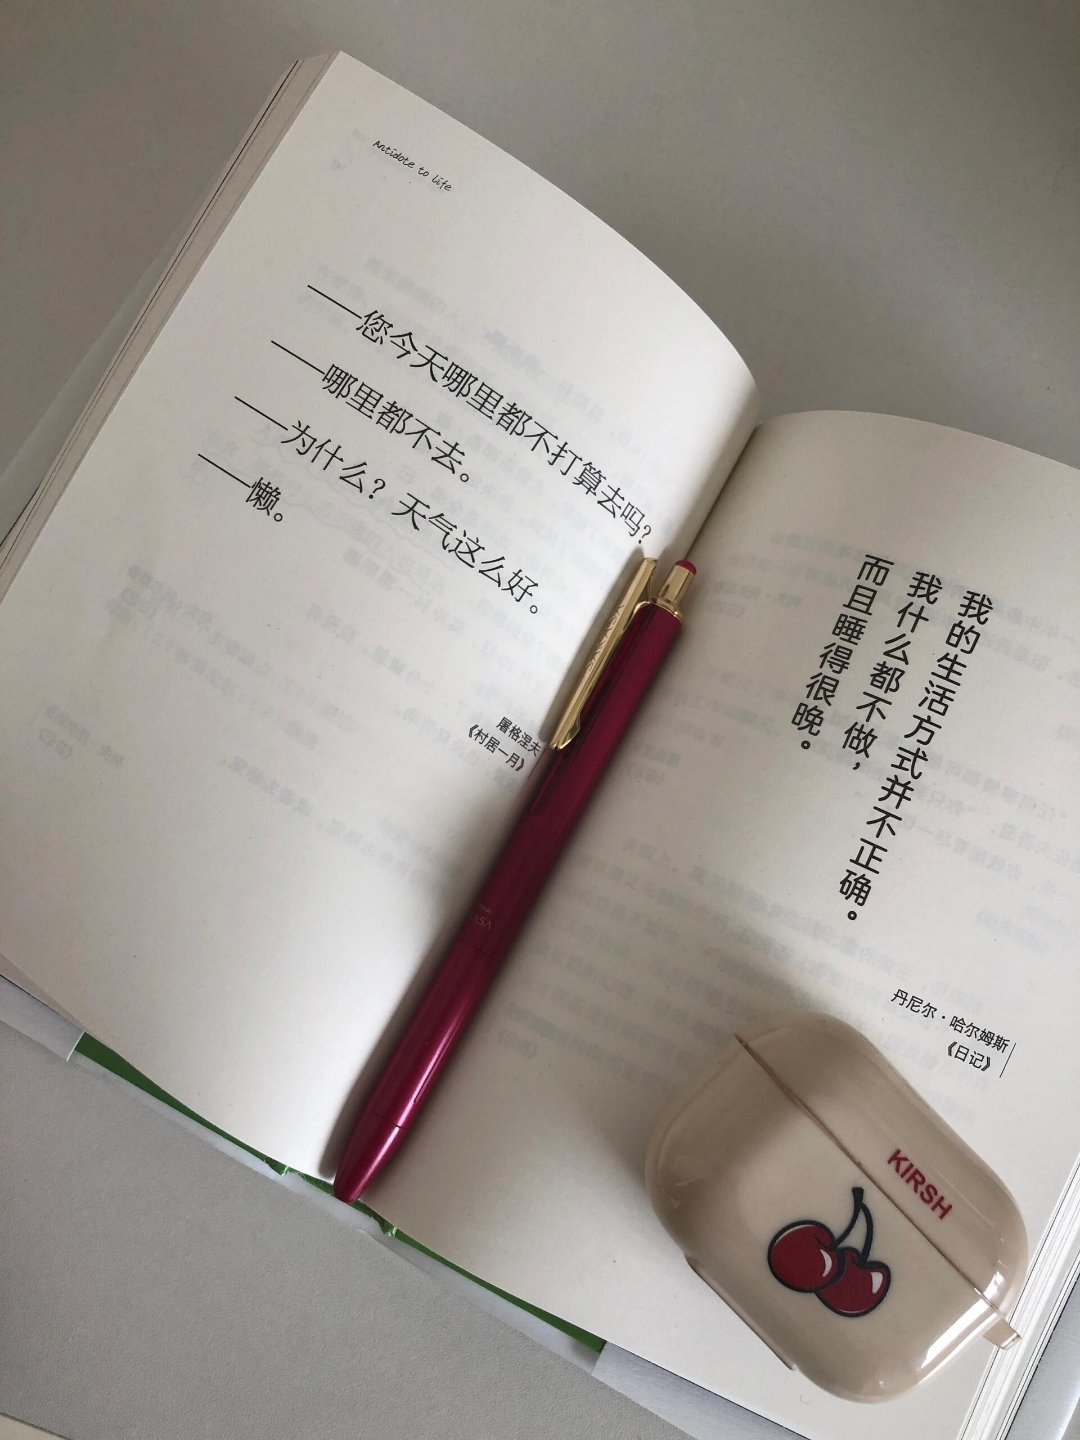 Antidote to life
——您今天哪里都不打算去吗？
——哪里都不去。
——为什么？天气这么好。
——懒。
屠格涅夫
《村居一月》
我的生活方式并不正确。
我什么都不做，
而且睡得很晚。
丹尼尔·哈尔姆斯
《日记》
KIRSH